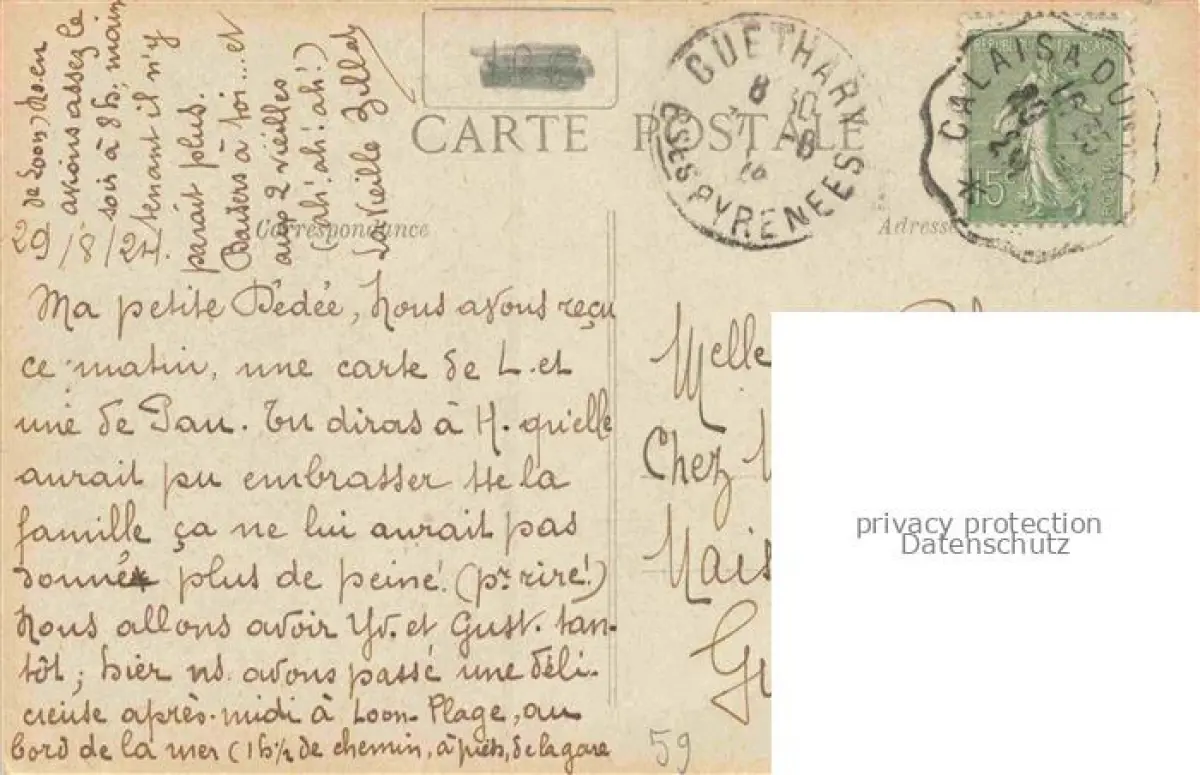 CARTE POSTALE
Correspondance
Adresse
GUETHARY
8 30
8
Bses PYRENEES
CALAIS A DUN
RÉPUBLIQUE FRANÇAISE
15c
Ma petite Dédée, Nous avons reçu
ce matin, une carte de L. et
une de Pau. Tu diras à H. qu'elle
aurait pu embrasser tte la
famille ça ne lui aurait pas
donné plus de peine! (pr rire!)
Nous allons avoir Yv. et Gust. tan-
tôt; hier ns. avons passé une déli-
cieuse après-midi à Loon-Plage, au
bord de la mer (1h½ de chemin, à pieds, de la gare
de Loon) Ns en
avions assez le
soir à 8h, main
tenant il n'y
paraît plus.
Baisers à toi... et
aux 2 vieilles
(ah! ah! ah!)
La vieille
29/8/24.
Melle
Chez
Mais
Gu
59
privacy protection
Datenschutz